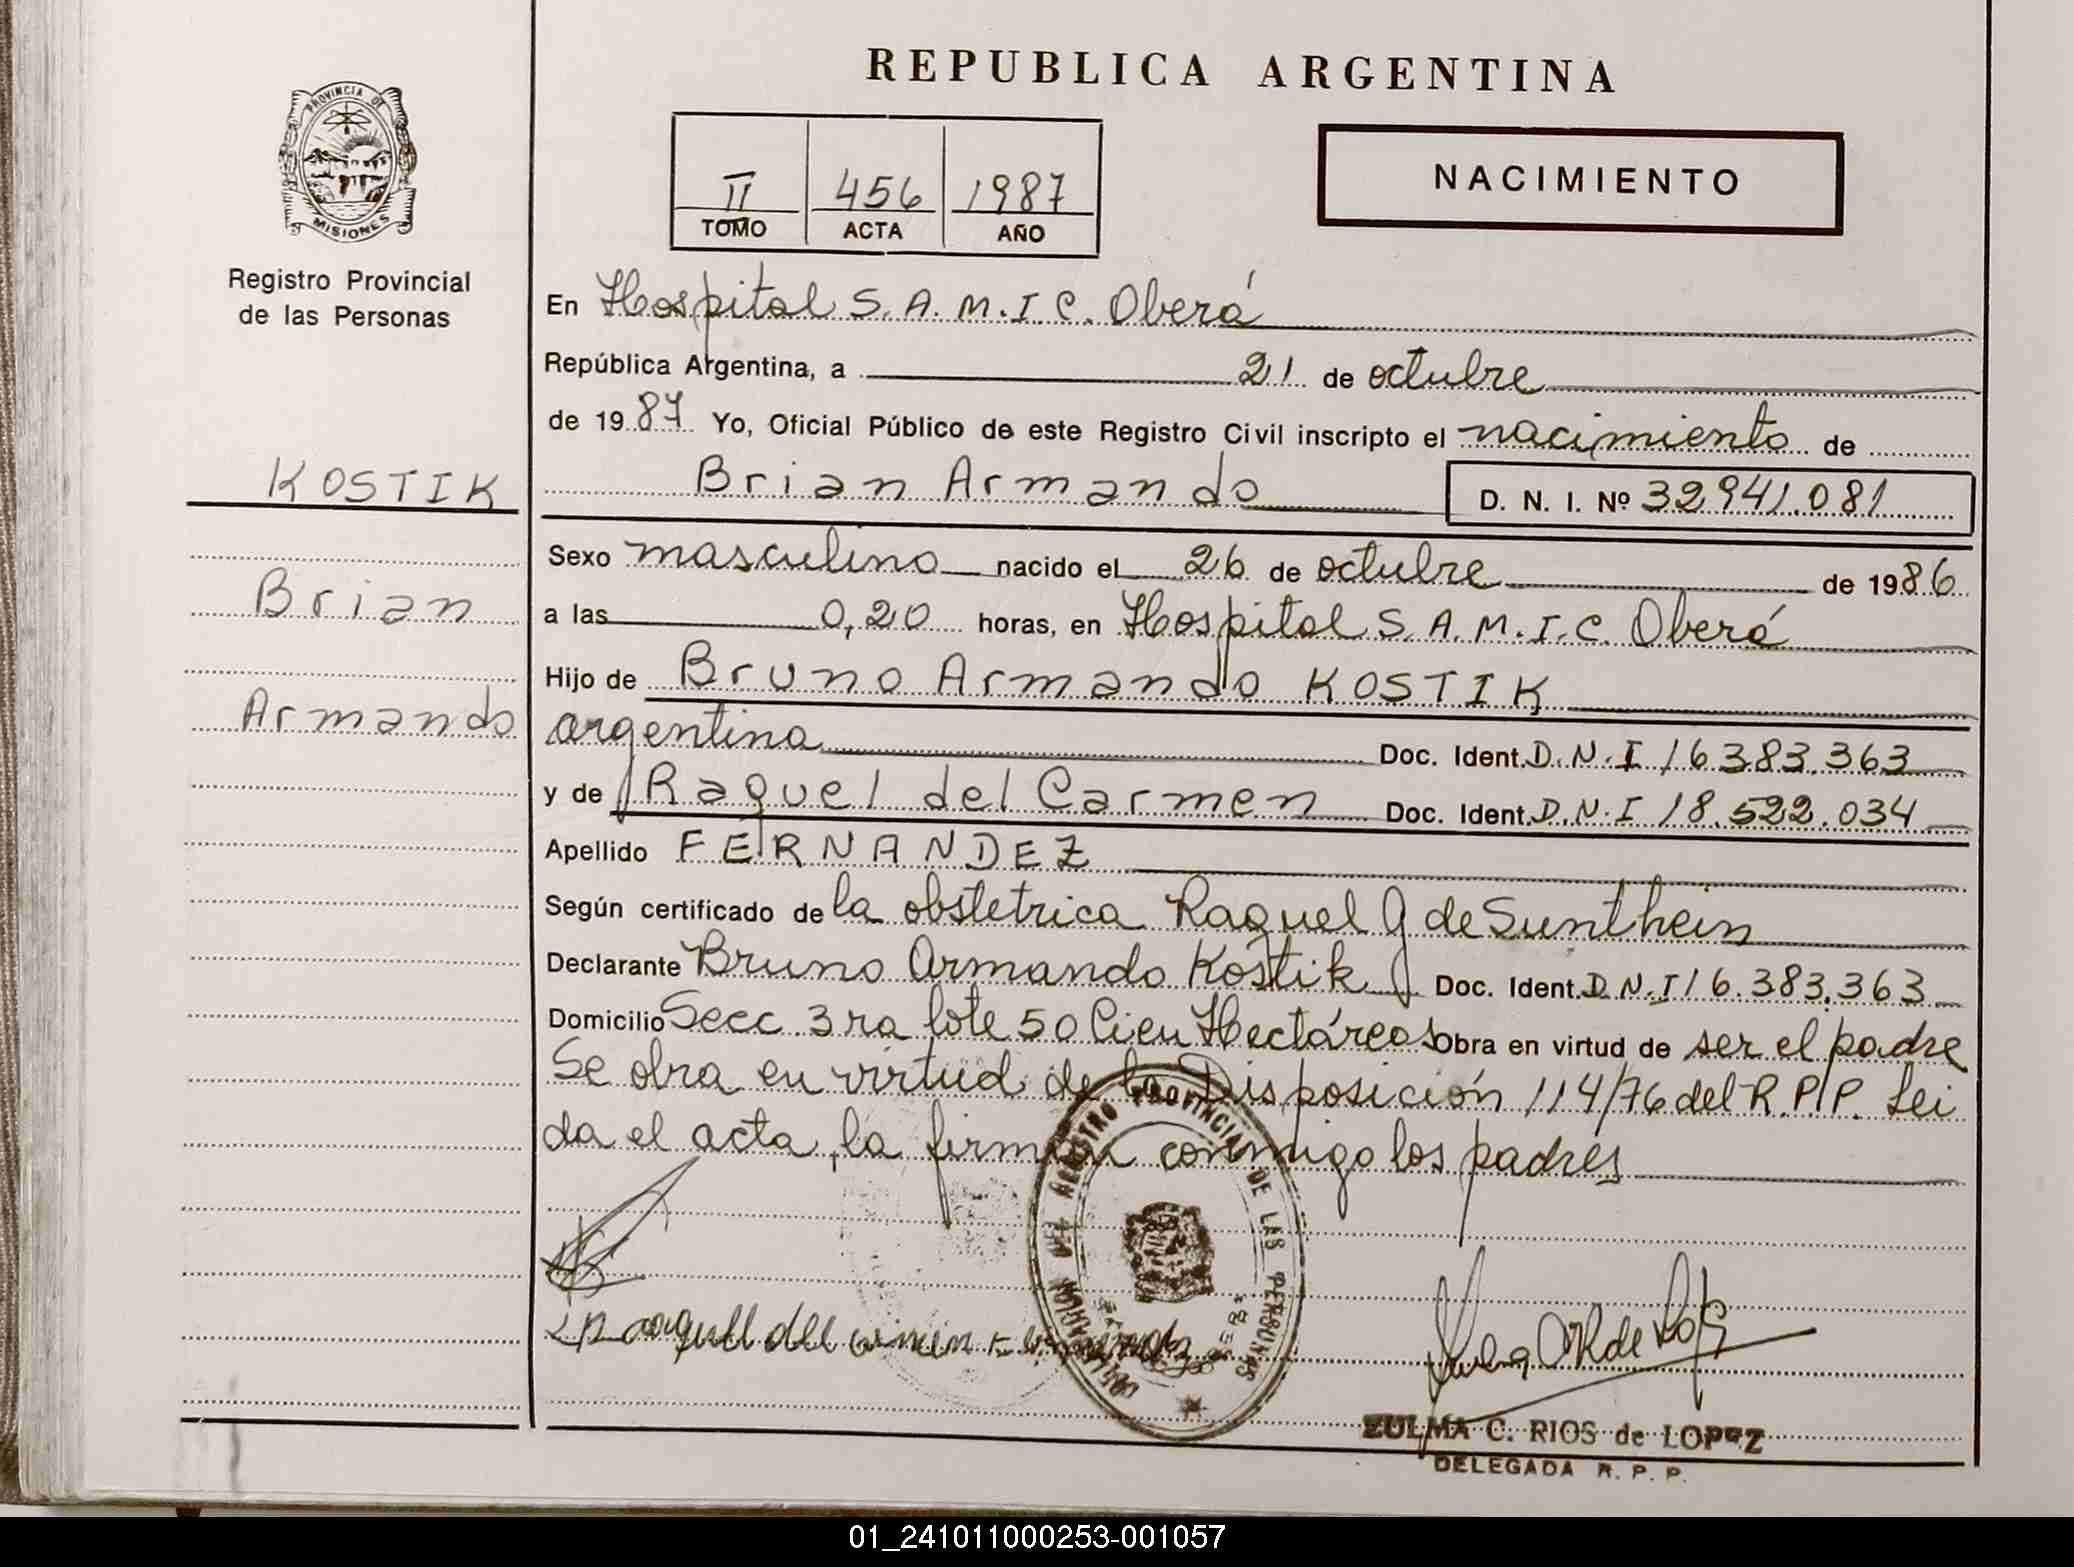 REPUBLICA ARGENTINA
PROVINCIA DE
MISIONES
Registro Provincial
de las Personas
II 456 1987
TOMO ACTA AÑO
NACIMIENTO
KOSTIK
Brian
Armando
En Hospital S.A.M.I.C. Oberá
República Argentina, a 21 de octubre
de 1987 Yo, Oficial Público de este Registro Civil inscripto el nacimiento de
Brian Armando D. N. I. Nº 32941.081
Sexo masculino nacido el 26 de octubre de 1986
a las 0,20 horas, en Hospital S.A.M.I.C. Oberá
Hijo de Bruno Armando KOSTIK
argentina Doc. Ident. D.N.I 16383.363
y de Raquel del Carmen Doc. Ident. D.N.I 18.522.034
Apellido FERNANDEZ
Según certificado de la obstetrica Raquel G de Sunthein
Declarante Bruno Armando Kostik Doc. Ident. D.N.I 16.383.363
Domicilio Secc 3ra lote 50 Cien Hectáreas Obra en virtud de ser el padre
Se obra en virtud de la Disposición 114/76 del R.P.P. Lei
da el acta, la firman conmigo los padres
REGISTRO PROVINCIAL DE LAS PERSONAS
ZULMA C. RIOS de LOPEZ
DELEGADA R. P. P.
01_241011000253-001057